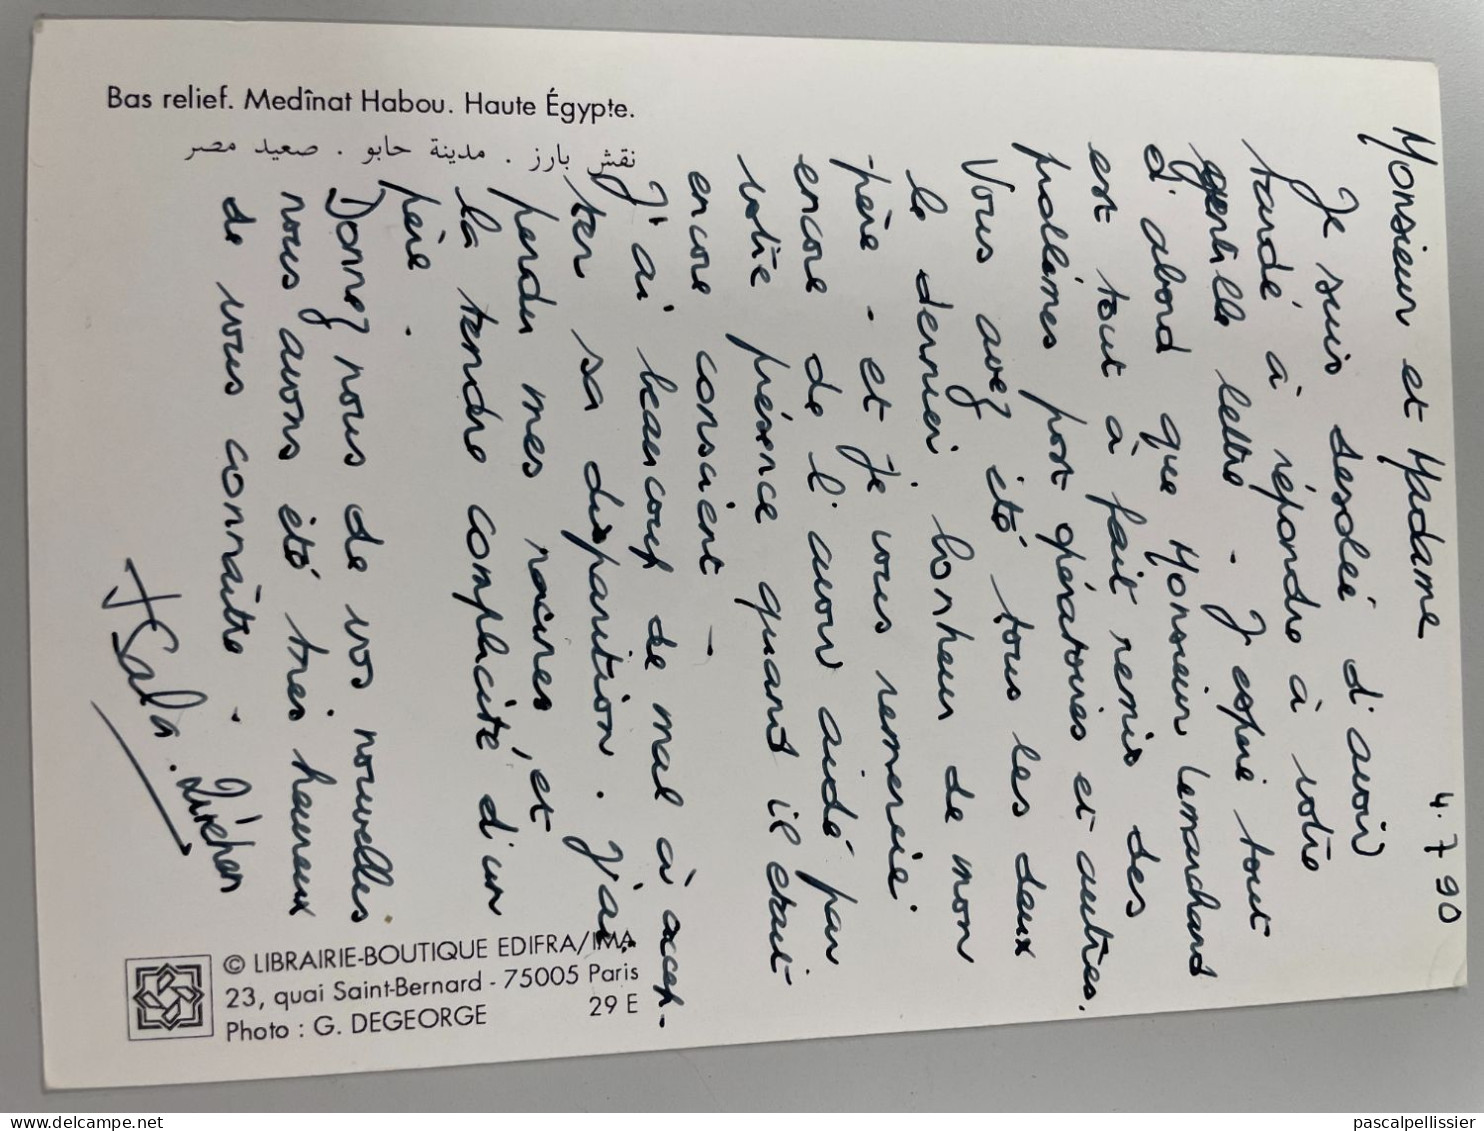 Bas relief. Medînat Habou. Haute Égypte.
نقش بارز . مدينة حابو . صعيد مصر
4. 7 90
Monsieur et Madame
Je suis desolée d'avoir
tardé à répondre à votre
gentille lettre . J'espère tout
d'abord que Monsieur Lemarchand
est tout à fait remis des
problèmes post opératoires et autres.
Vous avez été tous les deux
le dernier bonheur de mon
père - et je vous remercie
encore de l'avoir aidé par
votre présence quand il était
encore conscient -
J'ai beaucoup de mal à accep-
ter sa disparition . J'ai
perdu mes racines, et
la tendre complicité d'un
père .
Donnez nous de vos nouvelles
nous avons été très heureux
de vous connaître .
© LIBRAIRIE-BOUTIQUE EDIFRA/IMA
23, quai Saint-Bernard - 75005 Paris
Photo : G. DEGEORGE 29 E
delcampe.net
pascalpellissier